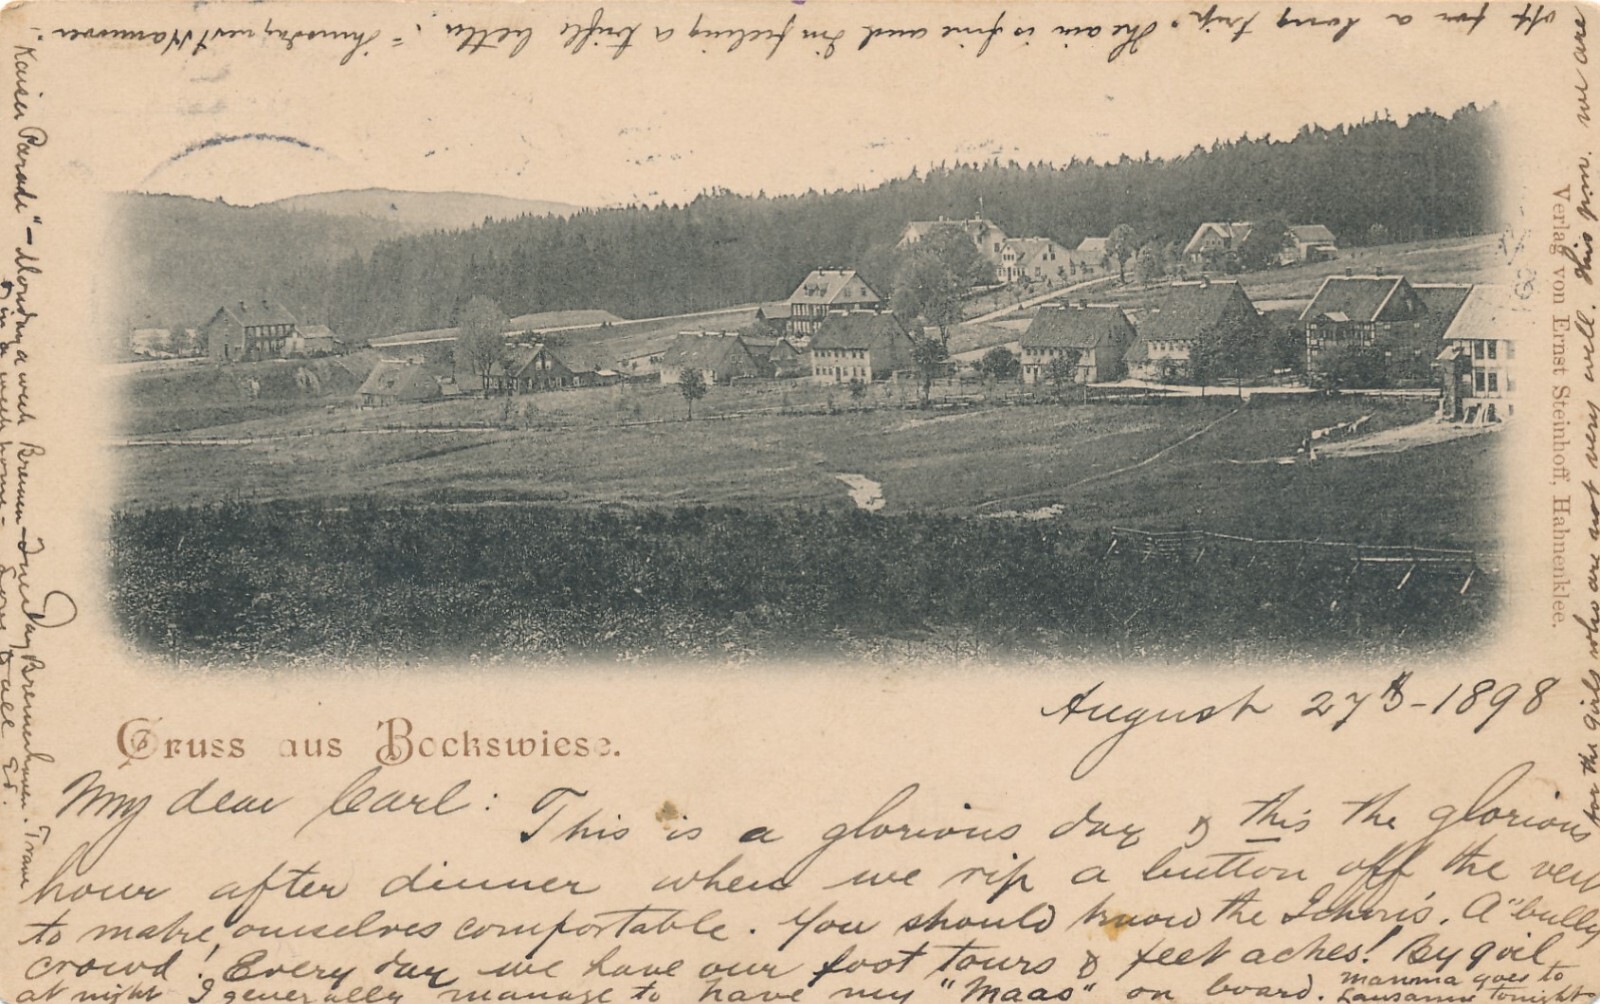 Gruss aus Bockswiese.
Verlag von Ernst Steinhoff, Hahnenklee.
August 27th - 1898
My dear Carl: This is a glorious day & this the glorious
hour after dinner when we rip a button off the vest
to make ourselves comfortable. You should know the A "bully
crowd! Every day we have our foot tours & feet aches! By
at night I generally manage to have my "Maas" on board. Mamma goes to
Lausanne tonight
for the girls who are not very well. This p.m. we are
off for a long trip. The air is fine and I'm feeling a trifle better. - Thursday next Hannover:
Kaiser Parade" - Monday a week Bremen - Tuesday Bremerhaven. Trave
in a week home - Love to all Ed.